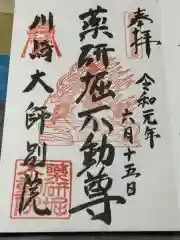 奉拝
令和元年
六月十五日
薬研堀不動尊
川崎大師別院
薬研堀